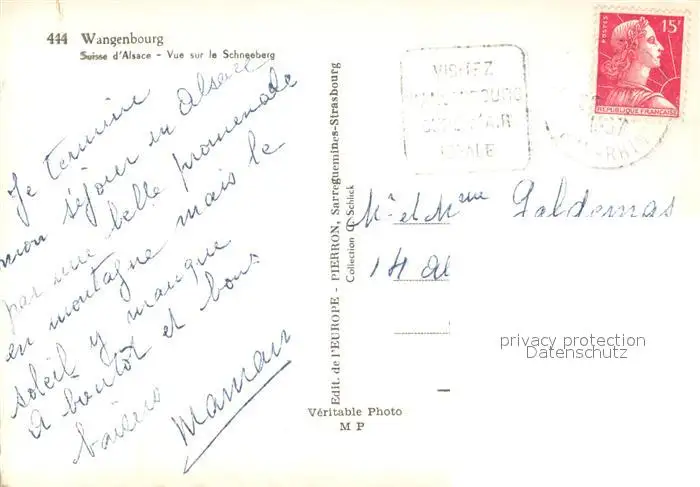 444 Wangenbourg
Suisse d'Alsace - Vue sur le Schneeberg
Je termine
mon séjour en Alsace
par une belle promenade
en montagne mais le
soleil y manque
A bientôt et bons
baisers
Maman
Edit. de l'EUROPE - PIERRON, Sarreguemines-Strasbourg
Collection G. Schlick
Véritable Photo
M P
VISITEZ
CURE D'AIR
POSTES 15F
REPUBLIQUE FRANÇAISE
Mr et Mme
14
privacy protection
Datenschutz